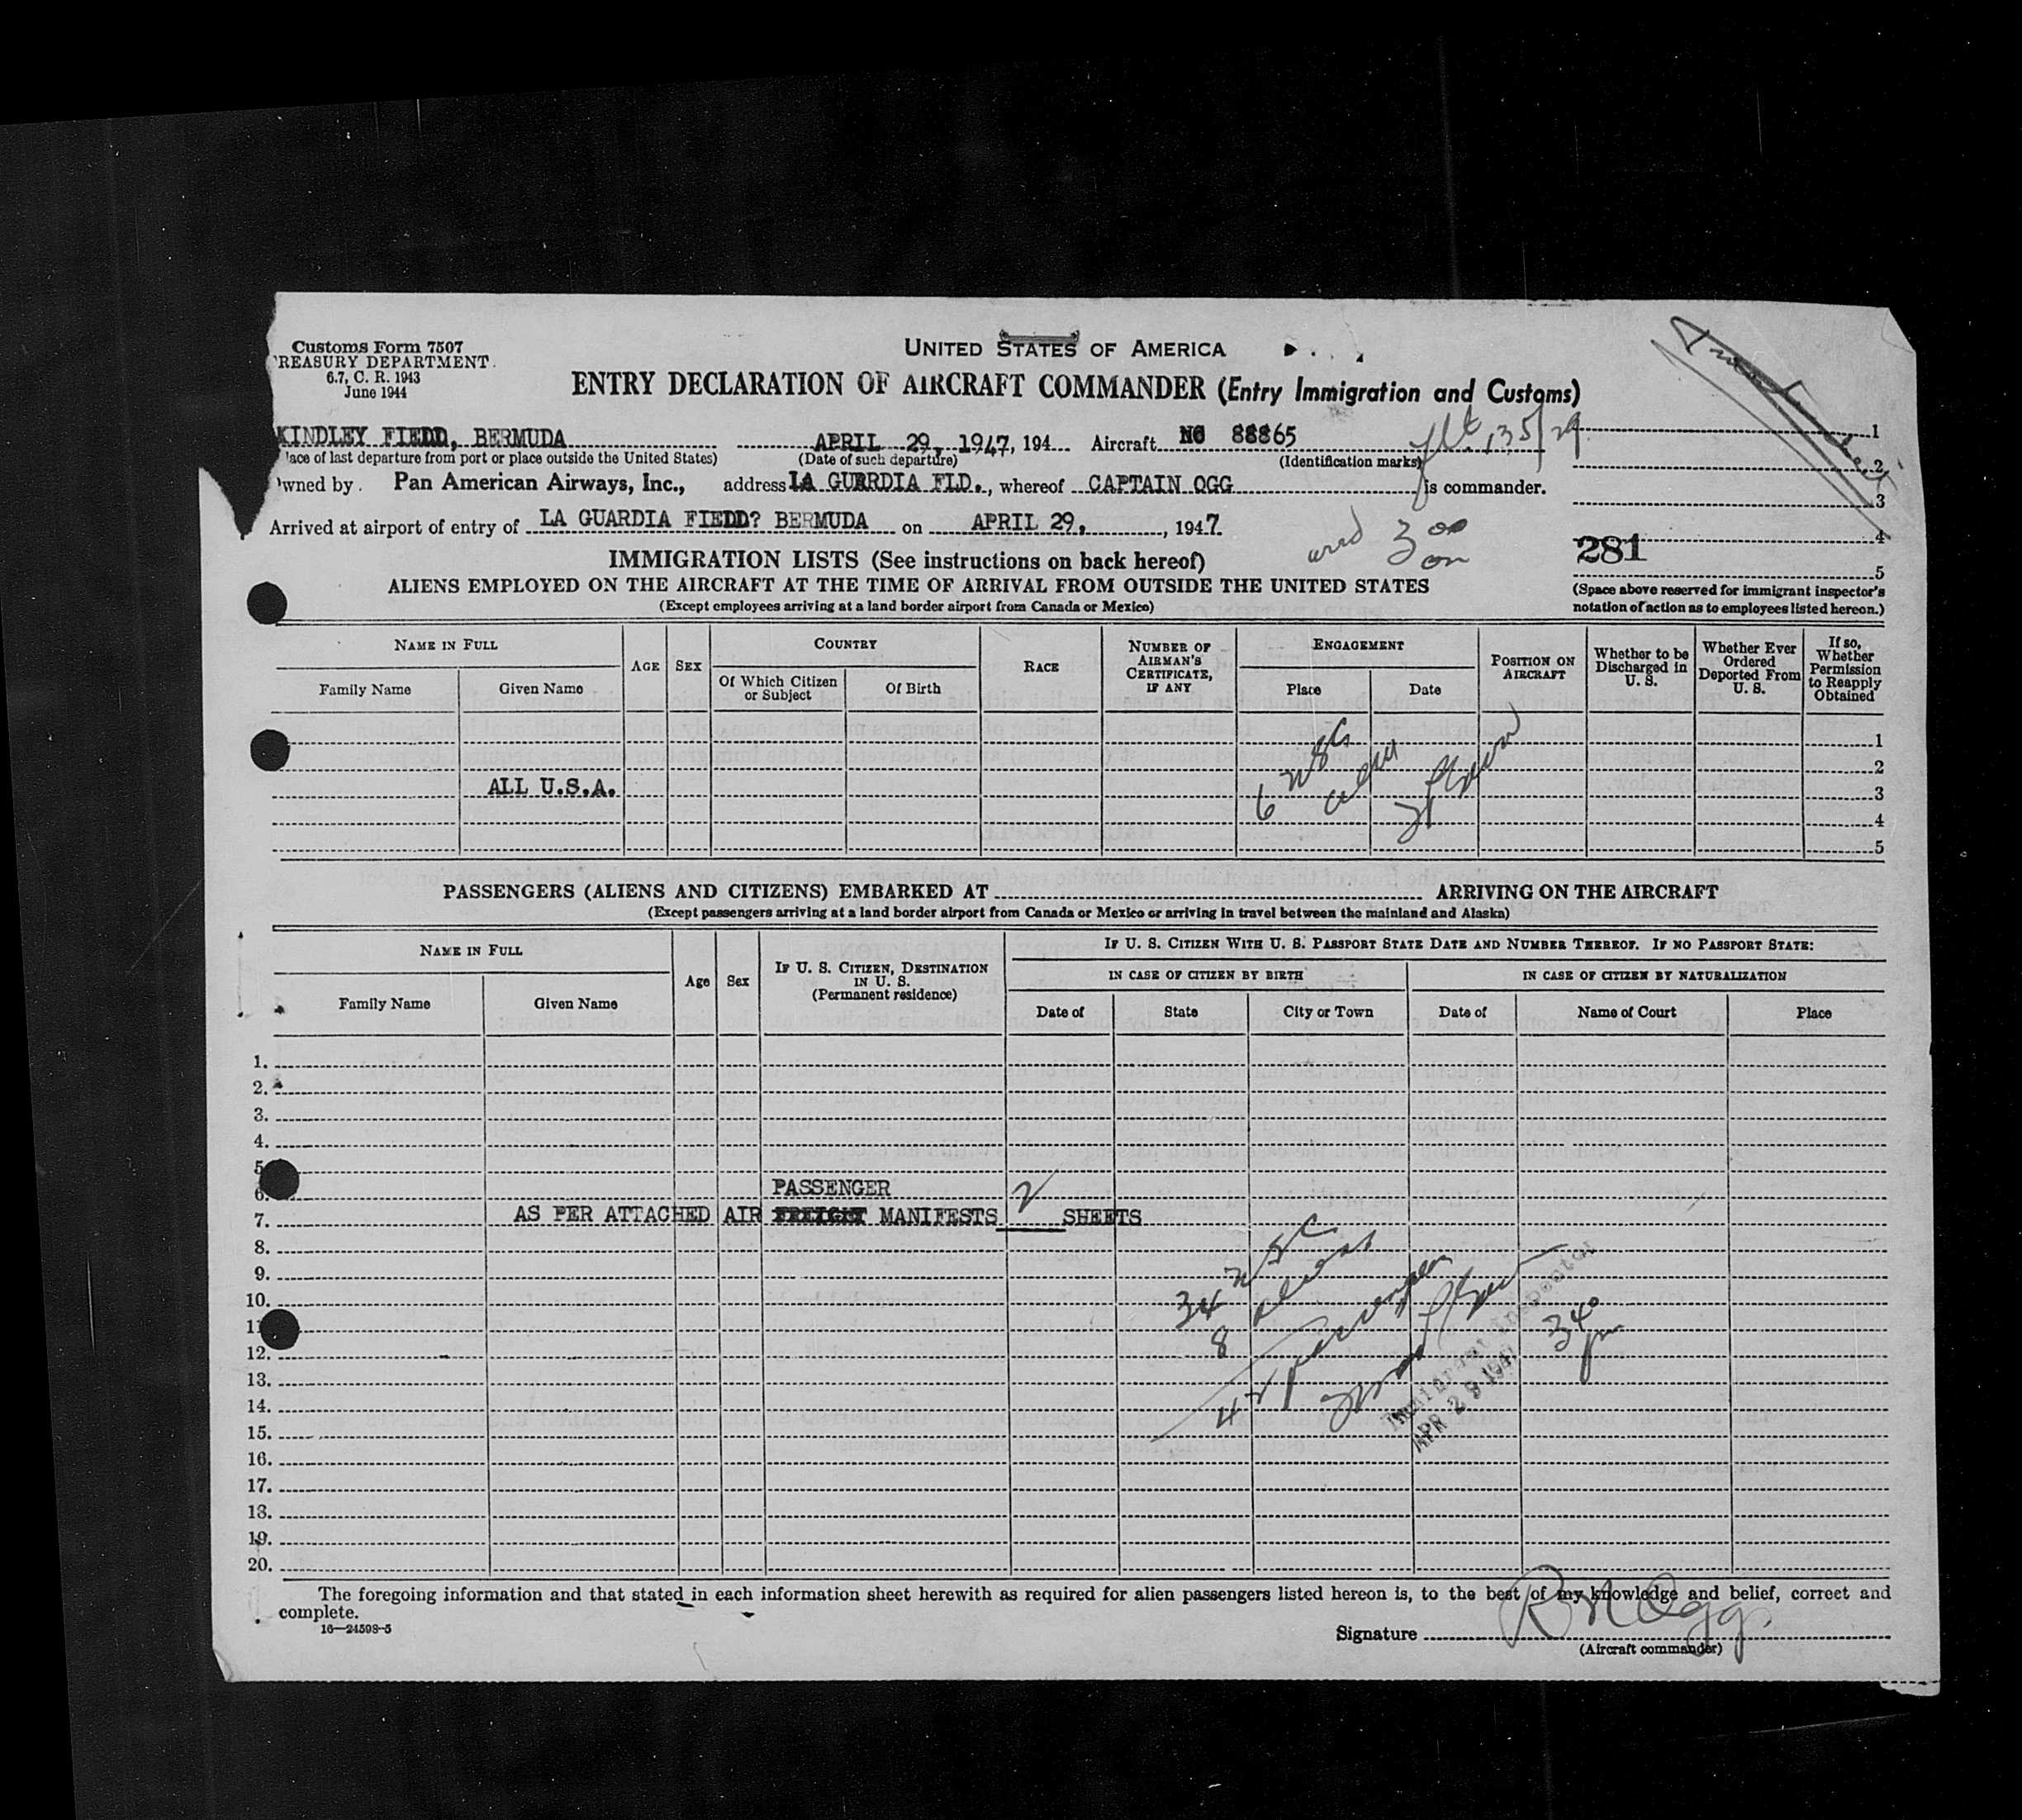 Customs Form 7507
TREASURY DEPARTMENT
6.7, C. R. 1943
June 1944
UNITED STATES OF AMERICA
ENTRY DECLARATION OF AIRCRAFT COMMANDER (Entry Immigration and Customs)
KINDLEY FIEDD, BERMUDA APRIL 29, 1947, 194 Aircraft NC 88865 flt 135/29 1
lace of last departure from port or place outside the United States) (Date of such departure) (Identification marks) 2
wned by Pan American Airways, Inc., address LA GURRDIA FLD., whereof CAPTAIN OGG is commander. 3
Arrived at airport of entry of LA GUARDIA FIEDD? BERMUDA on APRIL 29, 1947. 4
281 5
IMMIGRATION LISTS (See instructions on back hereof)
ALIENS EMPLOYED ON THE AIRCRAFT AT THE TIME OF ARRIVAL FROM OUTSIDE THE UNITED STATES
(Except employees arriving at a land border airport from Canada or Mexico)
(Space above reserved for immigrant inspector's
notation of action as to employees listed hereon.)
NAME IN FULL
Family Name Given Name
AGE SEX
COUNTRY
Of Which Citizen or Subject Of Birth
RACE
NUMBER OF AIRMAN'S CERTIFICATE, IF ANY
ENGAGEMENT
Place Date
POSITION ON AIRCRAFT
Whether to be Discharged in U. S.
Whether Ever Ordered Deported From U. S.
If so, Whether Permission to Reapply Obtained
1
2
ALL U.S.A. 3
4
5
6 USC
crew
PASSENGERS (ALIENS AND CITIZENS) EMBARKED AT ARRIVING ON THE AIRCRAFT
(Except passengers arriving at a land border airport from Canada or Mexico or arriving in travel between the mainland and Alaska)
NAME IN FULL
Family Name Given Name
Age Sex
IF U. S. CITIZEN, DESTINATION IN U. S. (Permanent residence)
IF U. S. CITIZEN WITH U. S. PASSPORT STATE DATE AND NUMBER THEREOF. IF NO PASSPORT STATE:
IN CASE OF CITIZEN BY BIRTH IN CASE OF CITIZEN BY NATURALIZATION
Date of State City or Town Date of Name of Court Place
1.
2.
3.
4.
5.
6. PASSENGER
7. AS PER ATTACHED AIR FREIGHT MANIFESTS 2 SHEETS
8.
9.
10.
11.
12.
13.
14.
15.
16.
17.
18.
19.
20.
34 USC
8 aliens
42 passengers
Immigrant Inspector
APR 29 1947
3 40
pm
The foregoing information and that stated in each information sheet herewith as required for alien passengers listed hereon is, to the best of my knowledge and belief, correct and
complete.
16—24598-5
Signature R N Ogg.
(Aircraft commander)